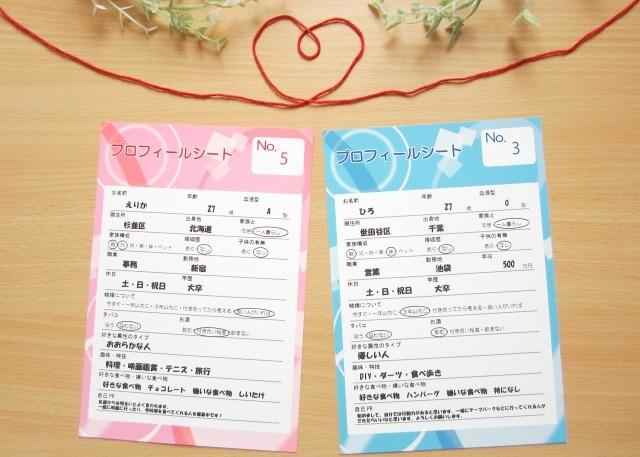 プロフィールシート
No. 5
お名前 年齢 血液型
えりか 27 歳 A 型
居住所 出身地 家族と
杉並区 北海道 同居 一人暮らし
家族構成 婚姻歴 子供の有無
職業 勤務地
事務 新宿
休日
土・日・祝日 大卒
結婚について
タバコ お酒
好きな異性のタイプ
おおらかな人
趣味・特技
料理・映画鑑賞・テニス・旅行
好きな食べ物・嫌いな食べ物
好きな食べ物 チョコレート 嫌いな食べ物 しいたけ
自己PR
プロフィールシート
No. 3
お名前 年齢 血液型
ひろ 27 歳 O 型
居住所 出身地 家族と
世田谷区 千葉 同居 一人暮らし
家族構成 婚姻歴 子供の有無
職業 勤務地 年収
営業 池袋 500 万円
休日
土・日・祝日 大卒
結婚について
タバコ お酒
好きな異性のタイプ
優しい人
趣味・特技
DIY・ダーツ・食べ歩き
好きな食べ物・嫌いな食べ物
好きな食べ物 ハンバーグ 嫌いな食べ物 特になし
自己PR